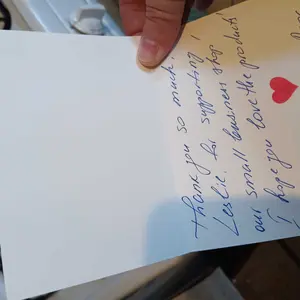 Thank you so much!
Leslie. for supporting
our small business shop!
I hope you love the products